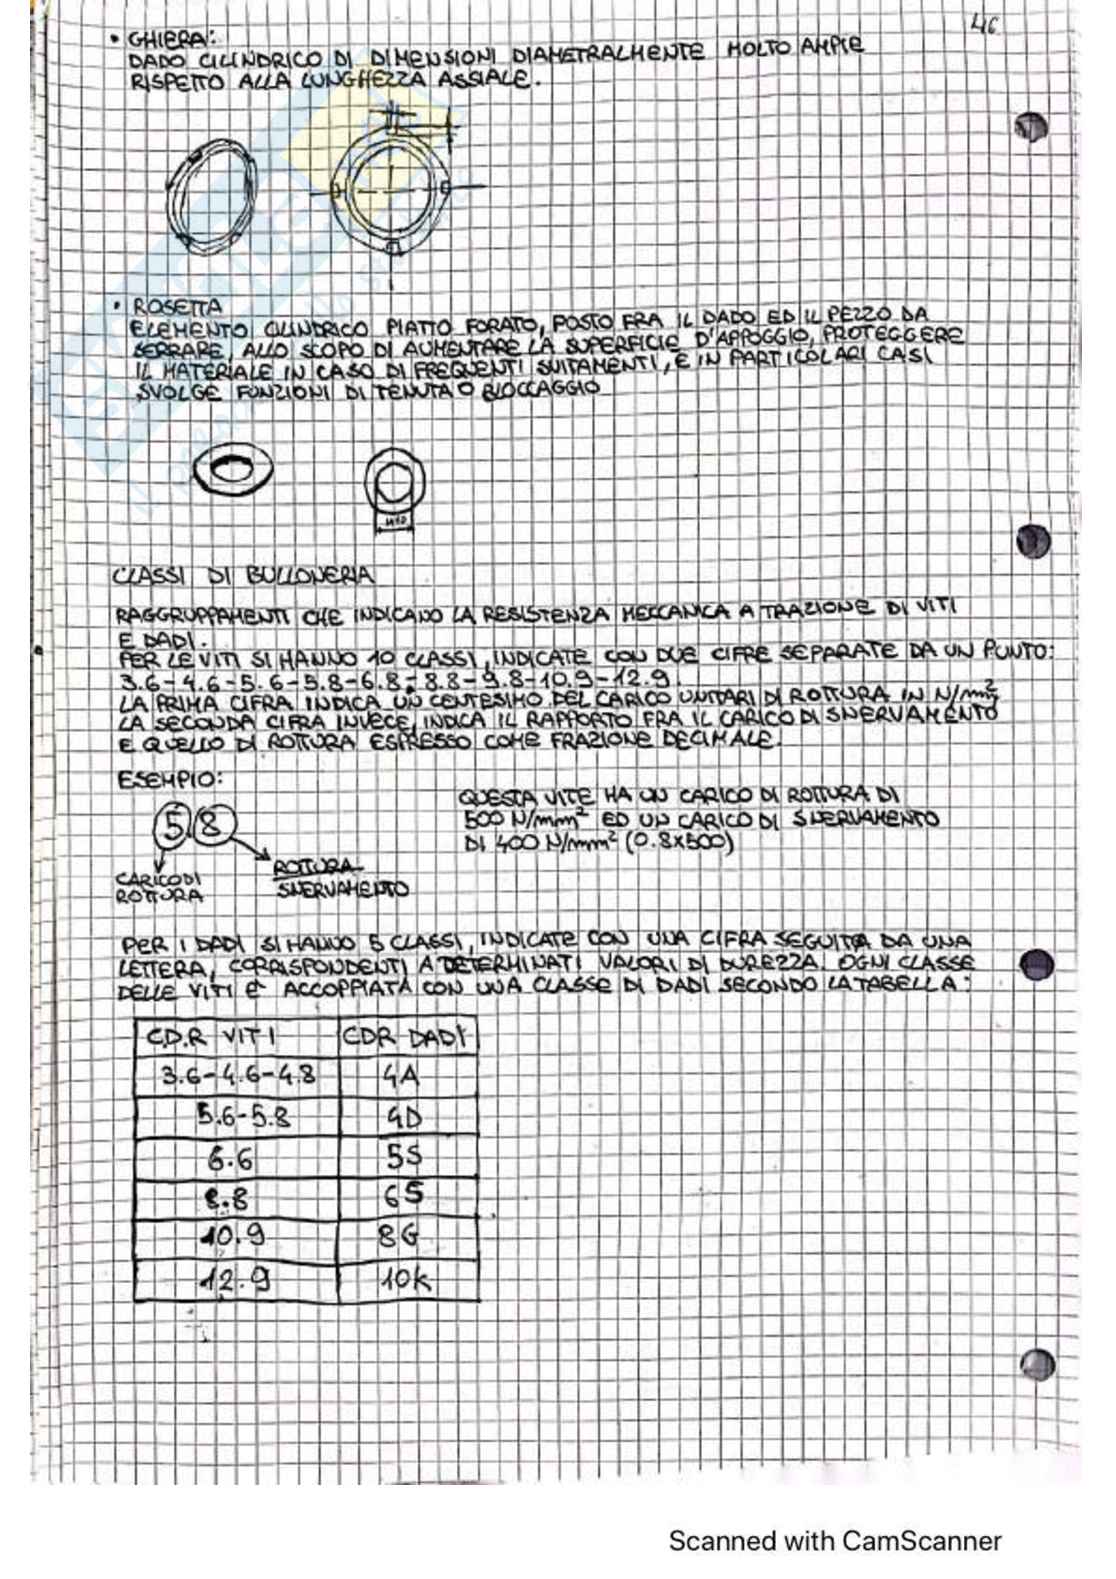 46
• GHIERA:
DADO CILINDRICO DI DIMENSIONI DIAMETRALMENTE MOLTO AMPIE
RISPETTO ALLA LUNGHEZZA ASSIALE.
• ROSETTA
ELEMENTO CILINDRICO PIATTO FORATO, POSTO FRA IL DADO ED IL PEZZO DA
SERRARE, ALLO SCOPO DI AUMENTARE LA SUPERFICIE D'APPOGGIO, PROTEGGERE
IL MATERIALE IN CASO DI FREQUENTI SVITAMENTI, E IN PARTICOLARI CASI
SVOLGE FUNZIONI DI TENUTA O BLOCCAGGIO
M10
CLASSI DI BULLONERIA
RAGGRUPPAMENTI CHE INDICANO LA RESISTENZA MECCANICA A TRAZIONE DI VITI
E DADI.
PER LE VITI SI HANNO 10 CLASSI, INDICATE CON DUE CIFRE SEPARATE DA UN PUNTO:
3.6-4.6-5.6-5.8-6.8-8.8-9.8-10.9-12.9.
LA PRIMA CIFRA INDICA UN CENTESIMO DEL CARICO UNITARI DI ROTTURA IN N/mm²
LA SECONDA CIFRA INVECE, INDICA IL RAPPORTO FRA IL CARICO DI SNERVAMENTO
E QUELLO DI ROTTURA ESPRESSO COME FRAZIONE DECIMALE.
ESEMPIO:
5.8
CARICO DI
ROTTURA
ROTTURA
SNERVAMENTO
QUESTA VITE HA UN CARICO DI ROTTURA DI
500 N/mm² ED UN CARICO DI SNERVAMENTO
DI 400 N/mm² (0.8x500)
PER I DADI SI HANNO 5 CLASSI, INDICATE CON UNA CIFRA SEGUITA DA UNA
LETTERA, CORRISPONDENTI A DETERMINATI VALORI DI DUREZZA. OGNI CLASSE
DELLE VITI E' ACCOPPIATA CON UNA CLASSE DI DADI SECONDO LA TABELLA:
C.D.R VITI CDR DADI
3.6-4.6-4.8 4A
5.6-5.8 4D
6.6 5S
8.8 6S
10.9 8G
12.9 10K
Scanned with CamScanner